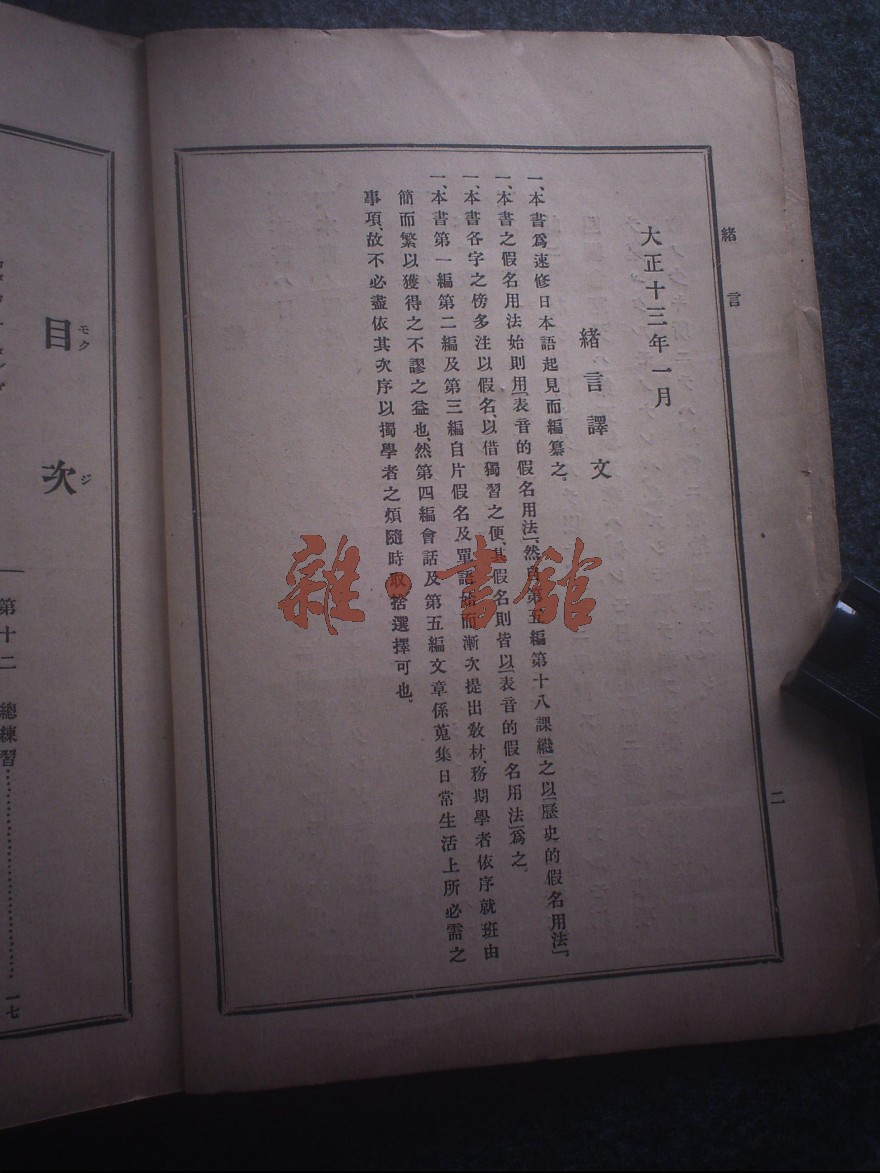 緒言
二
大正十三年一月
緒言譯文
一、本書爲速修日本語起見而編纂之。
一、本書之假名用法始則用「表音的假名用法」、然自第五編第十八課繼之以「歷史的假名用法」。
一、本書各字之傍多注以假名、以借獨習之便、其假名則皆以「表音的假名用法」爲之。
一、本書第一編第二編及第三編自片假名及單語始而漸次提出敎材、務期學者依序就班由
簡而繁以獲得之不謬之益也、然第四編會話及第五編文章係蒐集日常生活上所必需之
事項、故不必盡依其次序以獨學者之煩隨時取捨選擇可也。
雜·書館
目次
モクジ
第十二 總練習……………一七